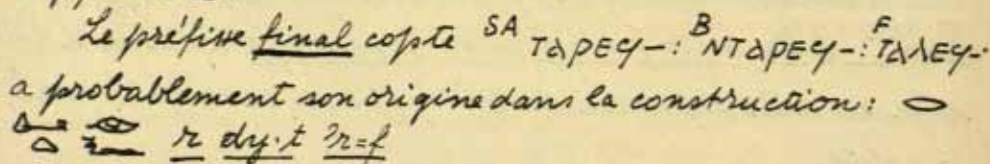 Le préfixe final copte SA ⲦⲀⲢⲈϤ-: B ⲚⲦⲀⲢⲈϤ-: F ⲦⲀⲖⲈϤ-
a probablement son origine dans la construction: 𓂋
r dy·t ꜣr=f